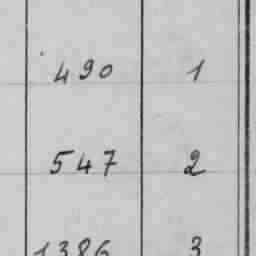 490 1
547 2
1386 3